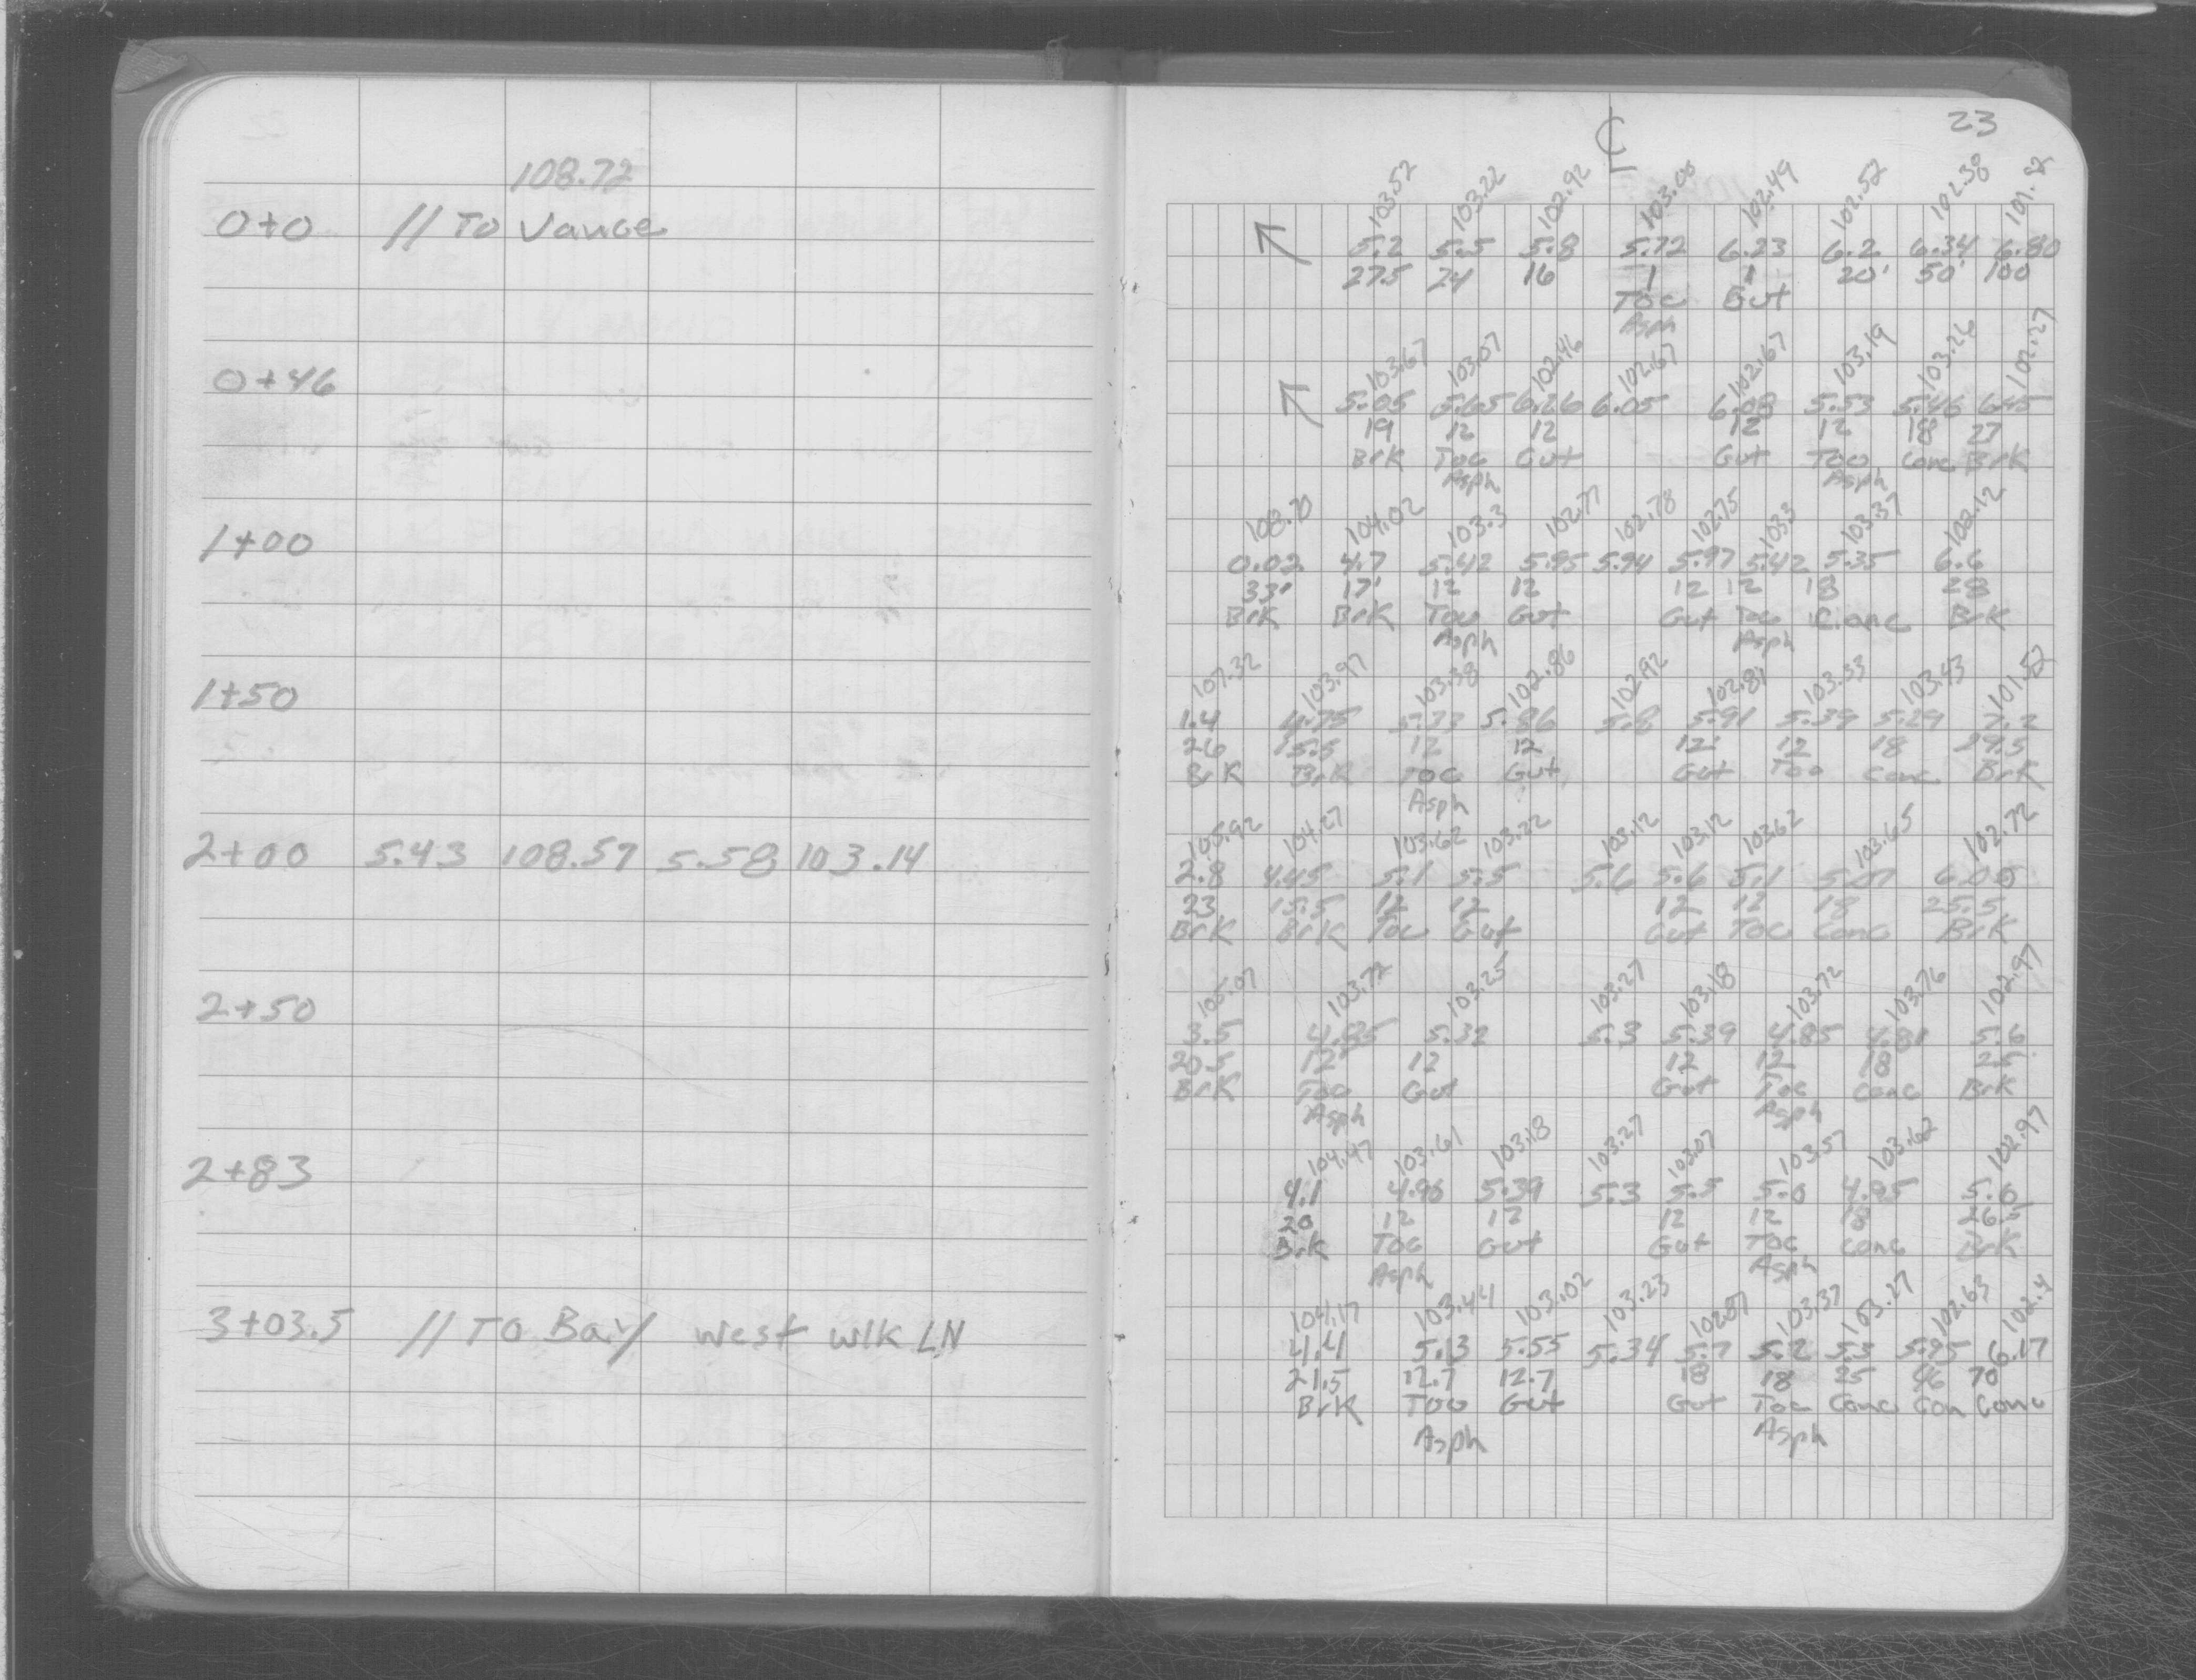 108.72
0+0 // To Vance
0+46
1+00
1+50
2+00 5.43 108.57 5.58 103.14
2+50
2+83
3+03.5 // To Bay West Wlk LN
23
℄
103.52 103.22 102.92 103.00 102.49 102.52 102.38 101.92
5.2 5.5 5.8 5.72 6.23 6.2 6.34 6.80
27.5 24 16 1 1 20' 50' 100
Toc Gut
Asph
103.67 103.07 102.46 102.67 102.67 103.19 103.26 102.27
5.05 5.65 6.26 6.05 6.08 5.53 5.46 6.45
19 12 12 12 12 18 27
Brk Toc Gut Gut Toc Conc Brk
Asph Asph
108.70 104.02 103.3 102.77 102.78 102.75 103.3 103.37 102.12
0.02 4.7 5.42 5.95 5.94 5.97 5.42 5.35 6.6
33' 17' 12 12 12 12 18 28
Brk Brk Toc Gut Gut Toc Conc Brk
Asph Asph
107.32 103.97 103.38 102.86 102.92 102.81 103.33 103.43 101.52
1.4 4.75 5.33 5.86 5.8 5.91 5.39 5.29 7.2
26 15.5 12 12 12 12 18 29.5
Brk Brk Toc Gut Gut Toc Conc Brk
Asph
105.92 104.27 103.62 103.22 103.12 103.12 103.62 103.65 102.72
2.8 4.45 5.1 5.5 5.6 5.6 5.1 5.07 6.05
23 15.5 12 12 12 12 18 25.5
Brk Brk Toc Gut Gut Toc Conc Brk
105.07 103.72 103.25 103.27 103.18 103.72 103.76 102.97
3.5 4.85 5.32 5.3 5.39 4.85 4.81 5.6
20.5 12 12 12 12 18 25
Brk Toc Gut Gut Toc Conc Brk
Asph Asph
104.47 103.61 103.18 103.27 103.07 103.57 103.62 102.97
4.1 4.96 5.39 5.3 5.5 5.0 4.95 5.6
20 12 12 12 12 18 26.5
Brk Toc Gut Gut Toc Conc Brk
Asph Asph
104.17 103.44 103.02 103.23 102.87 103.37 103.27 102.63 102.4
4.4 5.13 5.55 5.34 5.7 5.2 5.3 5.95 6.17
21.5 12.7 12.7 18 18 25 46 70
Brk Toc Gut Gut Toc Conc Con Conc
Asph Asph